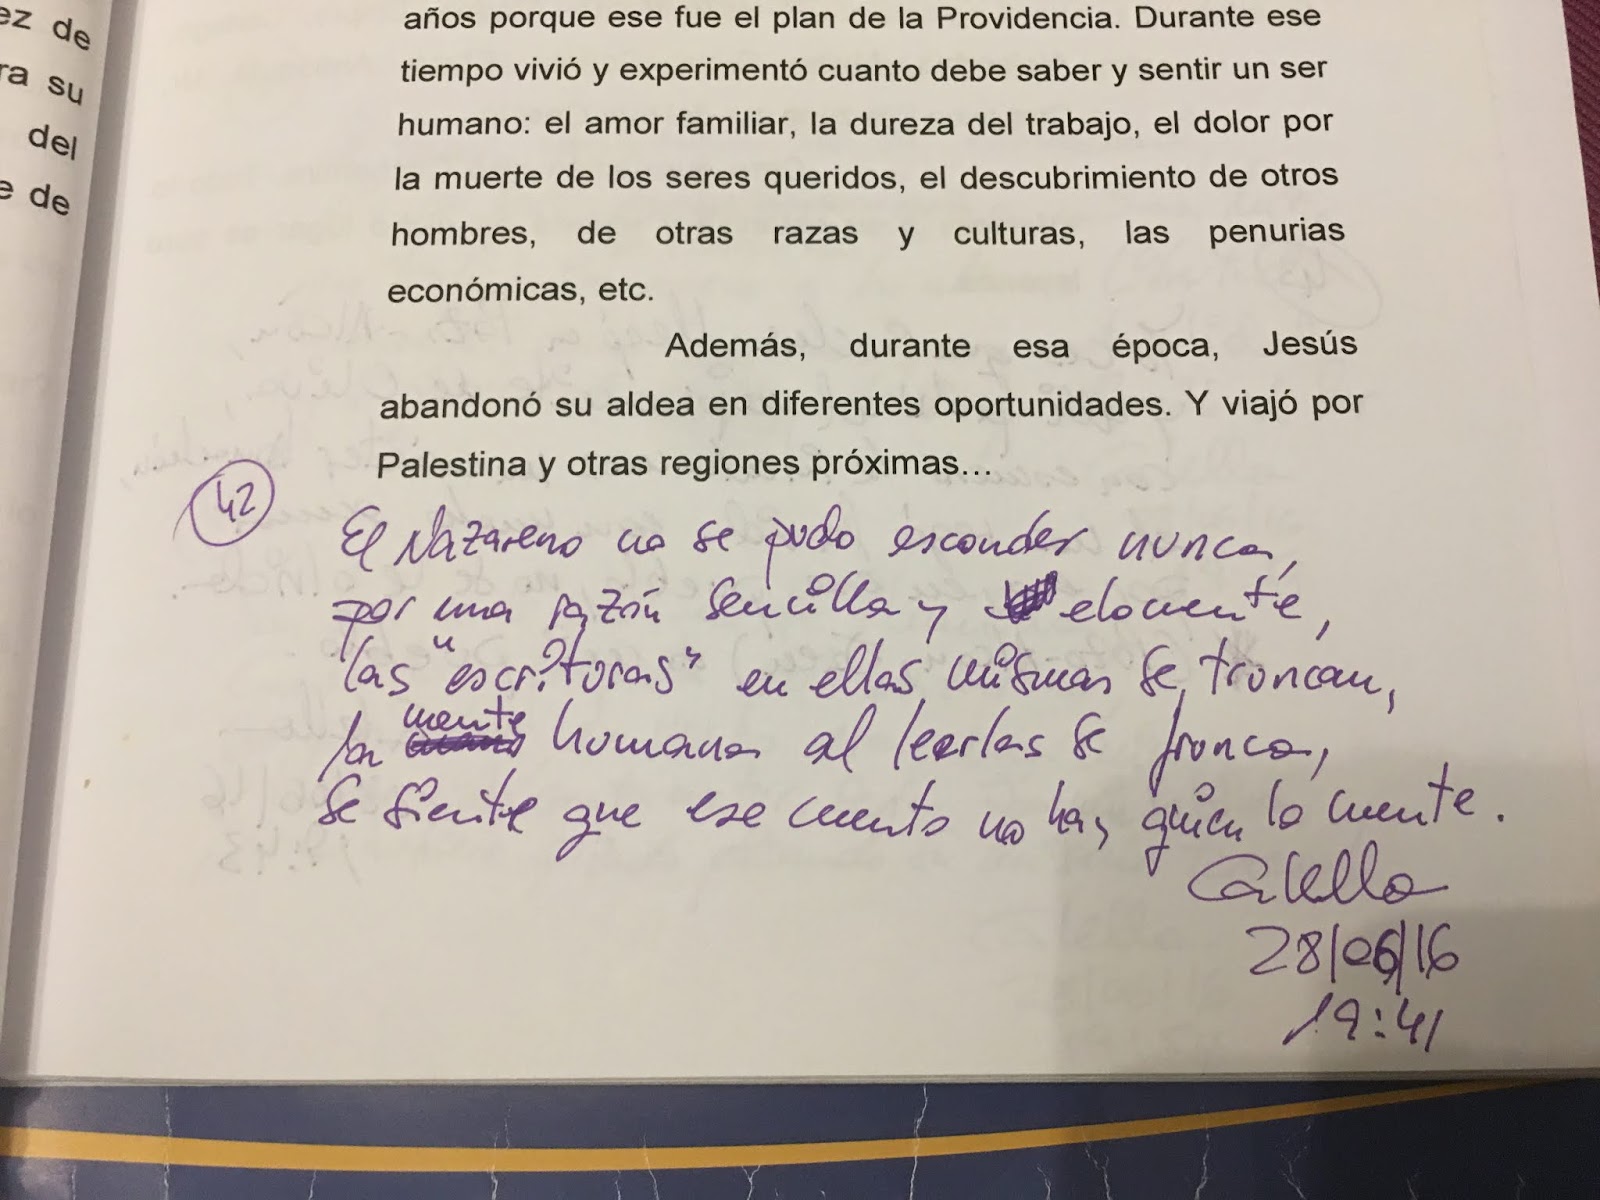 ez de
ra su
del
e de
años porque ese fue el plan de la Providencia. Durante ese
tiempo vivió y experimentó cuanto debe saber y sentir un ser
humano: el amor familiar, la dureza del trabajo, el dolor por
la muerte de los seres queridos, el descubrimiento de otros
hombres, de otras razas y culturas, las penurias
económicas, etc.
Además, durante esa época, Jesús
abandonó su aldea en diferentes oportunidades. Y viajó por
Palestina y otras regiones próximas...
42
El Nazareno no se pudo esconder nunca,
por una razón sencilla y elocuente,
las "escrituras" en ellas mismas se truncan,
la mente humana al leerlas se frunce,
se siente que ese cuento no hay quien lo cuente.
28/06/16
19:41